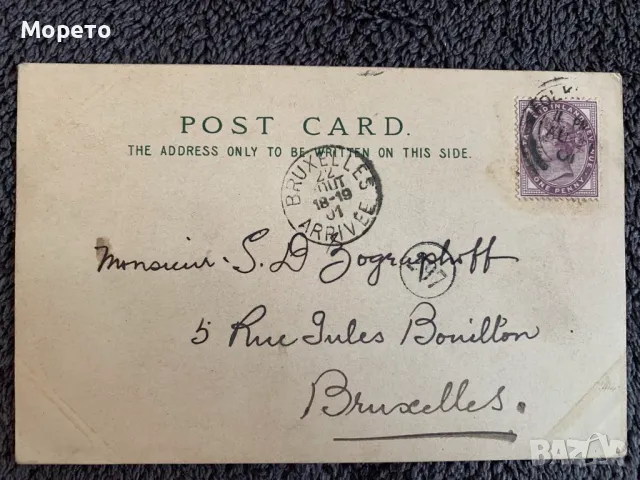 Морето
POST CARD.
THE ADDRESS ONLY TO BE WRITTEN ON THIS SIDE.
BRUXELLES
22
AOUT
18-19
01
ARRIVÉE
FOLK
AU
01
ONE PENNY
Monsieur S. D Zographoff
5 Rue Jules Bouillon
Bruxelles.
BAZAR